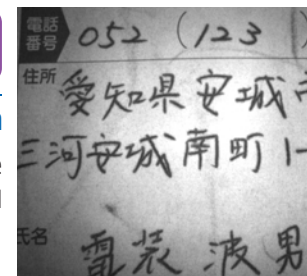 電話番号 052 (123
住所 愛知県安城市
三河安城南町1-
氏名 電装波男